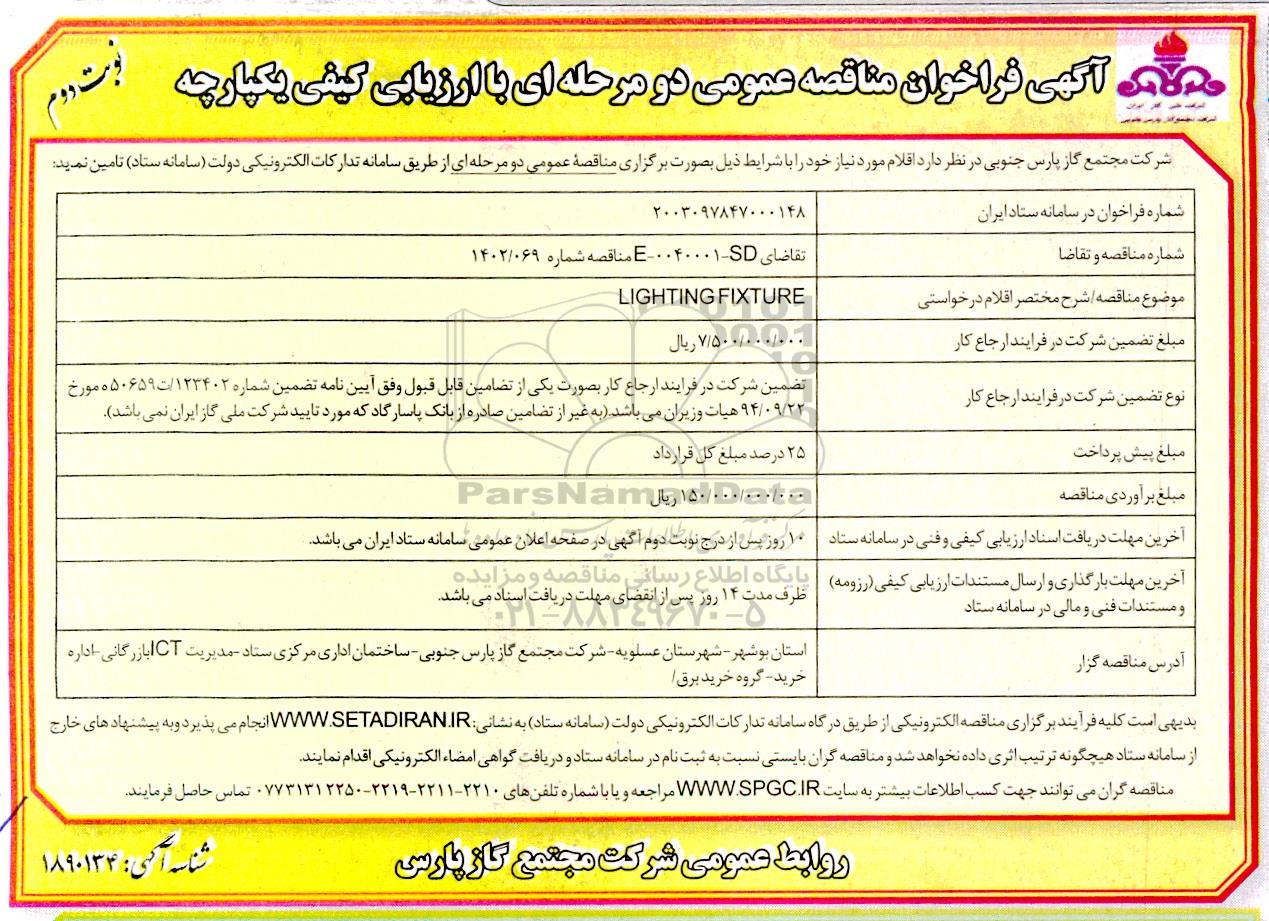 آگهی فراخوان مناقصه عمومی دو مرحله ای با ارزیابی کیفی یکپارچه
نوبت دوم
شرکت ملی گاز ایران
شرکت مجتمع گاز پارس جنوبی
شرکت مجتمع گاز پارس جنوبی در نظر دارد اقلام مورد نیاز خود را با شرایط ذیل بصورت برگزاری مناقصهٔ عمومی دو مرحله ای از طریق سامانه تدارکات الکترونیکی دولت (سامانه ستاد) تامین نمید:
شماره فراخوان در سامانه ستاد ایران
۲۰۰۳۰۹۷۸۴۷۰۰۰۱۴۸
شماره مناقصه و تقاضا
تقاضای E-۰۰۴۰۰۰۱-SD مناقصه شماره ۱۴۰۲/۰۶۹
موضوع مناقصه/شرح مختصر اقلام درخواستی
LIGHTING FIXTURE
مبلغ تضمین شرکت در فرایند ارجاع کار
۷/۵۰۰/۰۰۰/۰۰۰ ریال
نوع تضمین شرکت در فرایند ارجاع کار
تضمین شرکت در فرایند ارجاع کار بصورت یکی از تضامین قابل قبول وفق آیین نامه تضمین شماره ۱۲۳۴۰۲/ت۵۰۶۵۹ه مورخ
۹۴/۰۹/۲۲ هیات وزیران می باشد.(به غیر از تضامین صادره از بانک پاسارگاد که مورد تایید شرکت ملی گاز ایران نمی باشد).
مبلغ پیش پرداخت
۲۵ درصد مبلغ کل قرارداد
مبلغ برآوردی مناقصه
۱۵۰/۰۰۰/۰۰۰/۰۰۰ ریال
آخرین مهلت دریافت اسناد ارزیابی کیفی و فنی در سامانه ستاد
۱۰ روز پس از درج نوبت دوم آگهی در صفحه اعلان عمومی سامانه ستاد ایران می باشد.
آخرین مهلت بارگذاری و ارسال مستندات ارزیابی کیفی (رزومه)
و مستندات فنی و مالی در سامانه ستاد
ظرف مدت ۱۴ روز پس از انقضای مهلت دریافت اسناد می باشد.
آدرس مناقصه گزار
استان بوشهر-شهرستان عسلویه-شرکت مجتمع گاز پارس جنوبی-ساختمان اداری مرکزی ستاد-مدیریت ICTبازرگانی-اداره
خرید-گروه خرید برق/
بدیهی است کلیه فرآیند برگزاری مناقصه الکترونیکی از طریق درگاه سامانه تدارکات الکترونیکی دولت (سامانه ستاد) به نشانی: WWW.SETADIRAN.IR انجام می پذیرد وبه پیشنهادهای خارج
از سامانه ستاد هیچگونه ترتیب اثری داده نخواهد شد و مناقصه گران بایستی نسبت به ثبت نام در سامانه ستاد و دریافت گواهی امضاء الکترونیکی اقدام نمایند.
مناقصه گران می توانند جهت کسب اطلاعات بیشتر به سایت WWW.SPGC.IR مراجعه و یا با شماره تلفن های ۲۲۱۰-۲۲۱۱-۲۲۱۹-۰۷۷۳۱۳۱۲۲۵۰ تماس حاصل فرمایند.
روابط عمومی شرکت مجتمع گاز پارس
شناسه آگهی: ۱۸۹۰۱۳۴
ParsNamadData
پایگاه اطلاع رسانی مناقصه و مزایده
۰۲۱-۸۸۳۴۹۶۷۰-۵